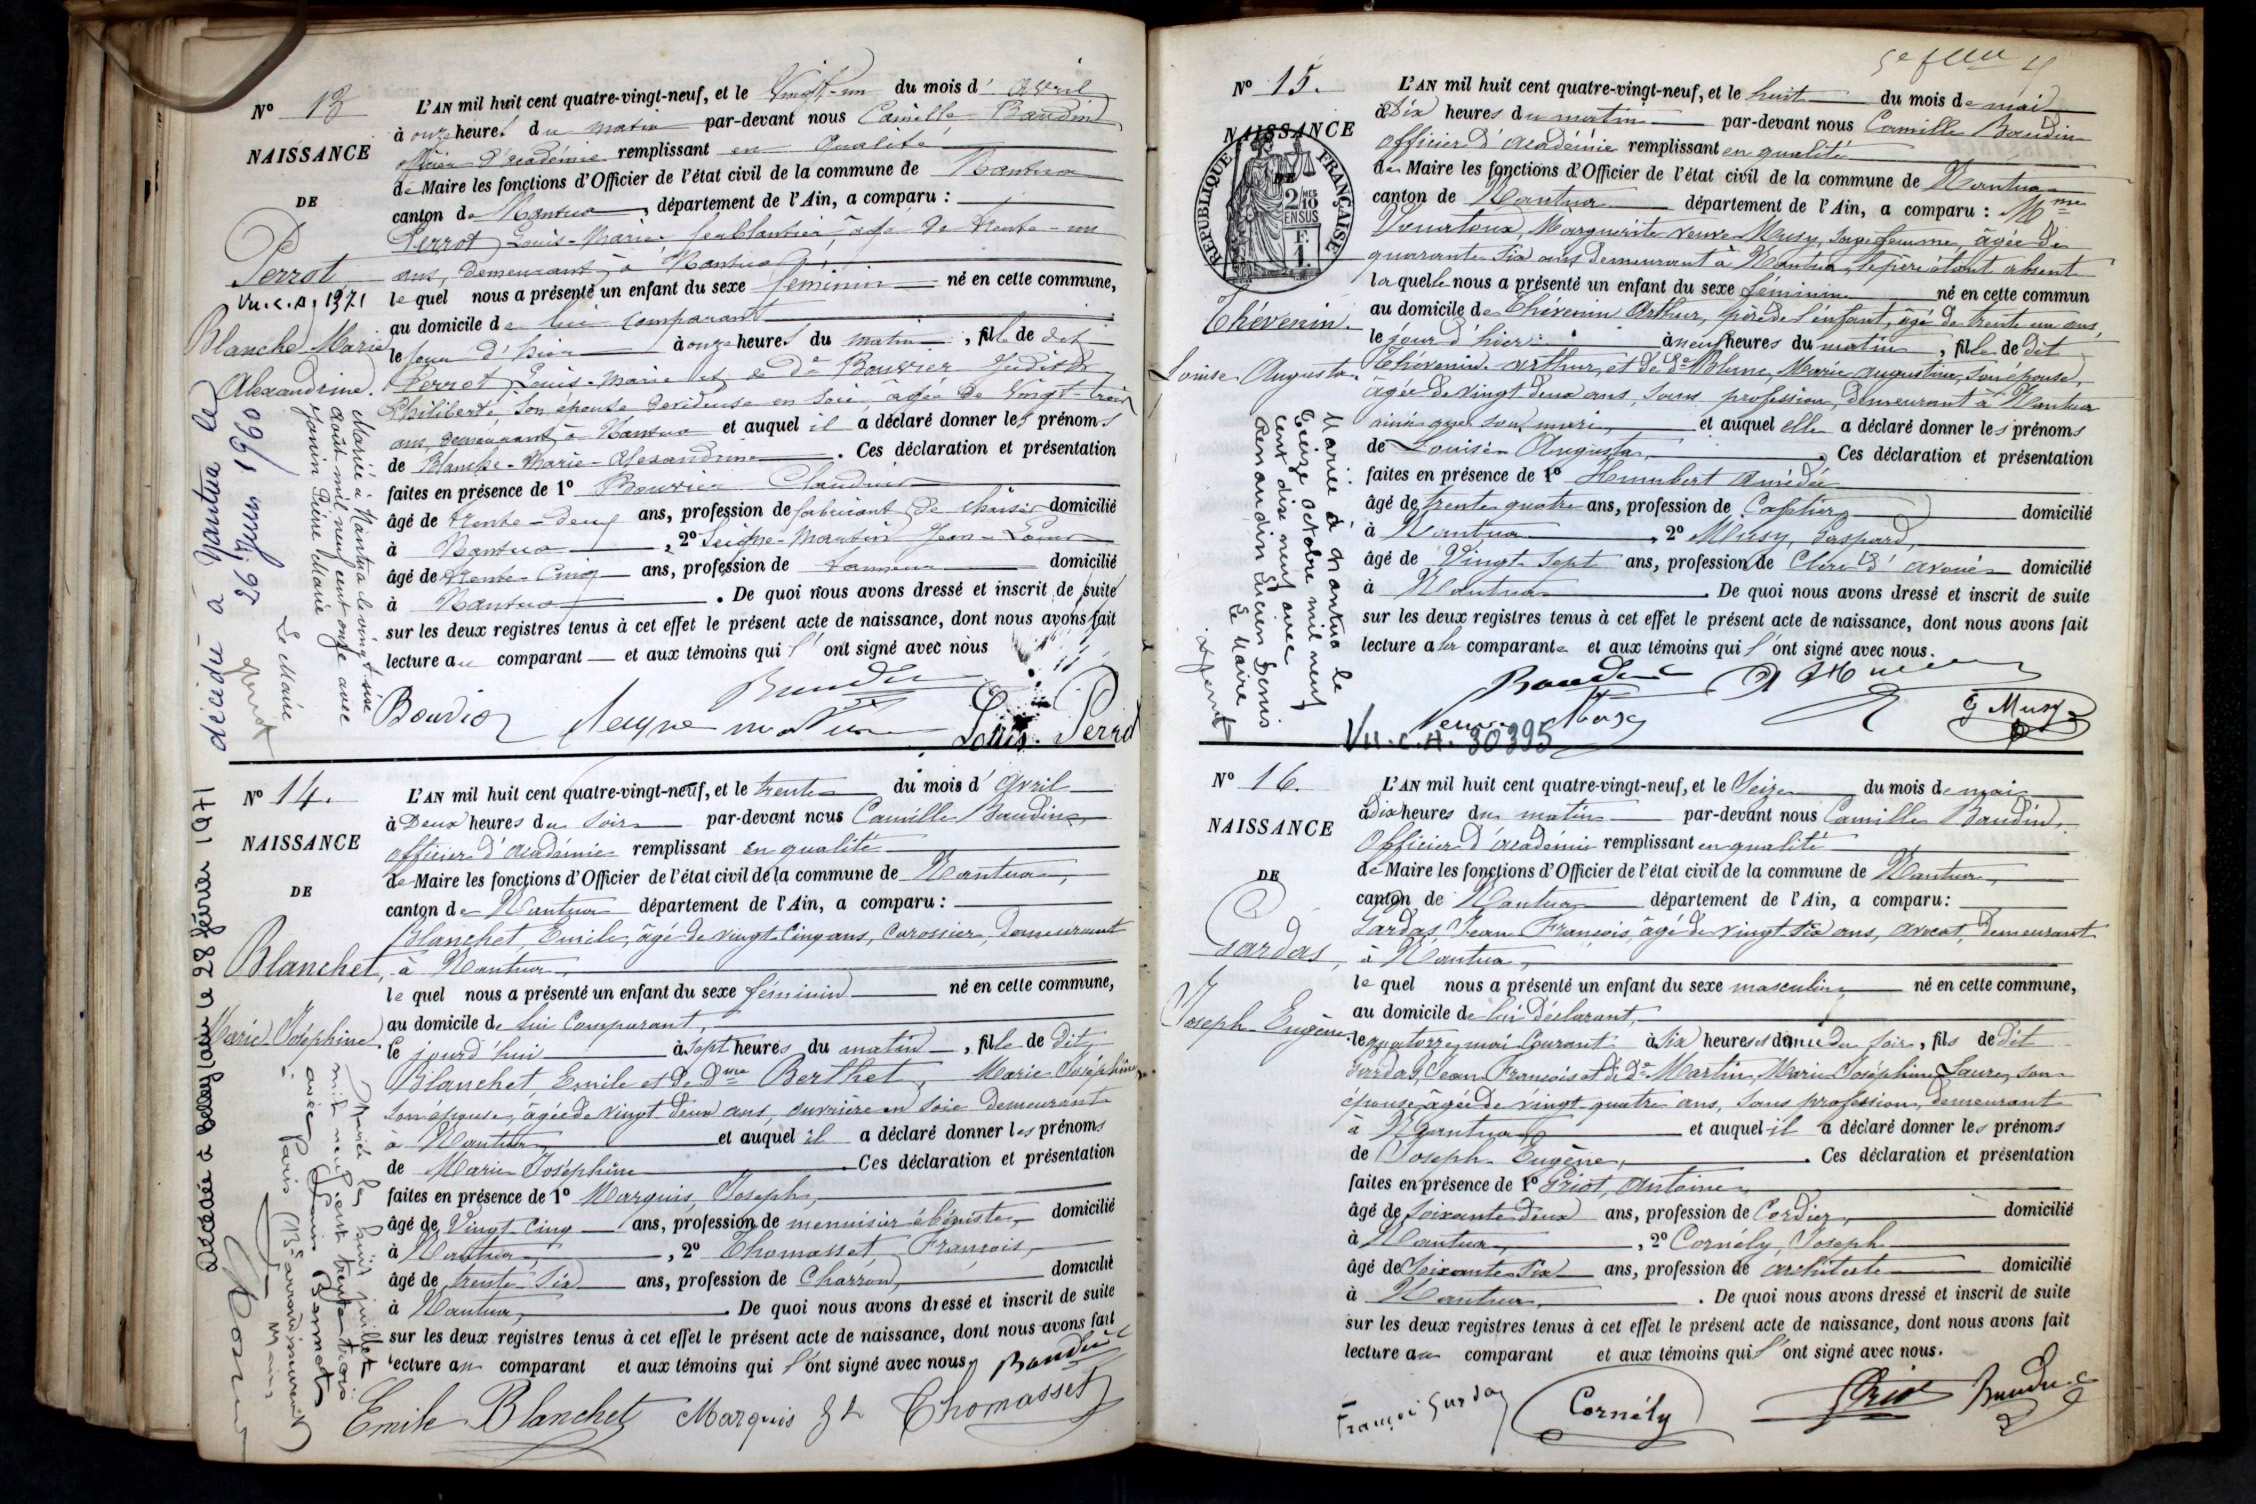 N° 13
NAISSANCE
DE
Perrot
Vu.c.A. 1371
Blanche Marie
Alexandrine.
L'AN mil huit cent quatre-vingt-neuf, et le Vingt-un du mois d'avril
à onze heures du matin par-devant nous Camille Baudin
officier d'académie remplissant en qualité
de Maire les fonctions d'Officier de l'état civil de la commune de Nantua
canton de Nantua, département de l'Ain, a comparu :
Perrot, Louis-Marie ferblantier, âgé de trente-un
ans, demeurant à Nantua
le quel nous a présenté un enfant du sexe féminin né en cette commune,
au domicile de lui comparant
le jour d'hier à onze heures du matin, fille de dit
Perrot, Louis-Marie et de De Bouvier Judith
Philiberte son épouse dévideuse en soie âgée de Vingt-trois
ans, demeurant à Nantua et auquel il a déclaré donner les prénoms
de Blanche-Marie-Alexandrine. Ces déclaration et présentation
faites en présence de 1° Bouvier Claudius
âgé de trente-deux ans, profession de fabricant de chaises domicilié
à Nantua, 2° Seigne-Martin Jean-Louis
âgé de trente-Cinq ans, profession de tanneur domicilié
à Nantua. De quoi nous avons dressé et inscrit de suite
sur les deux registres tenus à cet effet le présent acte de naissance, dont nous avons fait
lecture au comparant et aux témoins qui l'ont signé avec nous
Baudin
Bouvier Seigne martin Louis Perrot
Mariée à Nantua le vingt six
août mil neuf cent onze avec
Janin Pierre Marie
Le Maire
décédée à Nantua le
26 Juin 1960
N° 14.
NAISSANCE
DE
Blanchet,
Marie Joséphine.
L'AN mil huit cent quatre-vingt-neuf, et le trente du mois d'avril
à Deux heures du soir par-devant nous Camille Baudin
officier d'académie remplissant en qualité
de Maire les fonctions d'Officier de l'état civil de la commune de Nantua,
canton de Nantua département de l'Ain, a comparu :
Blanchet, Emile, âgé de vingt-cinq ans, carossier, demeurant
à Nantua,
le quel nous a présenté un enfant du sexe féminin né en cette commune,
au domicile de lui Comparant,
le jourd'hui à sept heures du matin, fille de dit
Blanchet Emile et de Dme Berthet, Marie Joséphine
son épouse, âgée de vingt deux ans, ouvrière en soie demeurant
à Nantua, et auquel il a déclaré donner les prénoms
de Marie Joséphine. Ces déclaration et présentation
faites en présence de 1° Marquis, Joseph,
âgé de Vingt-cinq ans, profession de menuisier ébéniste, domicilié
à Nantua, 2° Thomasset François,
âgé de trente six ans, profession de Charron, domicilié
à Nantua, De quoi nous avons dressé et inscrit de suite
sur les deux registres tenus à cet effet le présent acte de naissance, dont nous avons fait
lecture au comparant et aux témoins qui l'ont signé avec nous, Baudin
Emile Blanchet Marquis Thomasset
Mariée le huit juillet
mil neuf cent trente trois
avec Louis Bernot
à Paris 13e arrondissement
Décédée à Belley (Ain) le 28 février 1971
N° 15.
NAISSANCE
DE
REPUBLIQUE FRANÇAISE
2/10 EN SUS
Thévenin.
Louise-Augusta.
L'AN mil huit cent quatre-vingt-neuf, et le huit du mois de mai
à Dix heures du matin par-devant nous Camille Baudin
officier d'académie remplissant en qualité
de Maire les fonctions d'Officier de l'état civil de la commune de Nantua
canton de Nantua département de l'Ain, a comparu : Mme
Marguerite veuve Musy, sage femme, âgée de
quarante six ans demeurant à Nantua, le père étant absent
la quelle nous a présenté un enfant du sexe féminin né en cette commun
au domicile de Thévenin Arthur, père de l'enfant, âgé de trente un ans,
le jour d'hier à neuf heures du matin, fille de dit
Thévenin Arthur, et de De Blanc, Marie Augustine, son épouse,
âgée de vingt deux ans, sans profession, demeurant à Nantua
ainsi que son mari, et auquel elle a déclaré donner les prénoms
de Louise Augusta, Ces déclaration et présentation
faites en présence de 1° Humbert Amédée
âgé de trente quatre ans, profession de Cafetier domicilié
à Nantua, 2° Musy, Gaspard,
âgé de Vingt-sept ans, profession de Clerc d'avoué domicilié
à Nantua. De quoi nous avons dressé et inscrit de suite
sur les deux registres tenus à cet effet le présent acte de naissance, dont nous avons fait
lecture à la comparante et aux témoins qui l'ont signé avec nous.
Baudin
Veuve Musy G Musy
Vu.c.A. 30395
Mariée à Nantua le
treize octobre mil neuf
cent dix neuf avec
Renaudin Lucien Denis
Le Maire
N° 16.
NAISSANCE
DE
Gardas,
Joseph-Eugène
L'AN mil huit cent quatre-vingt-neuf, et le Seize du mois de mai
à dix heures du matin par-devant nous Camille Baudin,
Officier d'académie remplissant en qualité
de Maire les fonctions d'Officier de l'état civil de la commune de Nantua,
canton de Nantua département de l'Ain, a comparu :
Gardas Jean François, âgé de vingt-six ans, avocat, demeurant
à Nantua,
le quel nous a présenté un enfant du sexe masculin, né en cette commune,
au domicile de lui déclarant,
le quatorze mai courant à six heures et demie du soir, fils de dit
Gardas, Jean François et de De Martin, Marie Joséphine Laure, son
épouse, âgée de vingt-quatre ans, sans profession, demeurant
à Nantua, et auquel il a déclaré donner les prénoms
de Joseph-Eugène, Ces déclaration et présentation
faites en présence de 1° Griot, Antoine,
âgé de soixante deux ans, profession de Cordier, domicilié
à Nantua, 2° Cornély, Joseph
âgé de soixante six ans, profession de architecte domicilié
à Nantua, De quoi nous avons dressé et inscrit de suite
sur les deux registres tenus à cet effet le présent acte de naissance, dont nous avons fait
lecture au comparant et aux témoins qui l'ont signé avec nous.
François Gardas Cornély Griot Baudin